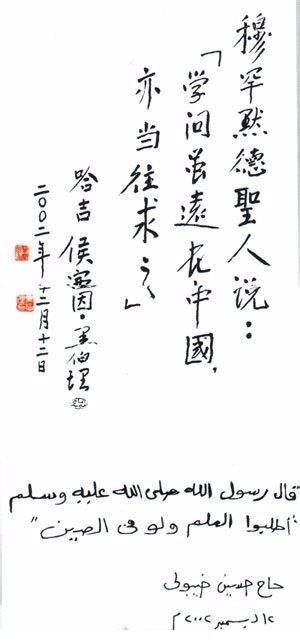 穆罕默德聖人说：
「学问虽遠在中國，
亦当往求之」
哈吉 侯赛因·黑伯理
二〇〇二年十二月十二日
"قال رسول الله صلى الله عليه وسلم
"اطلبوا العلم ولو في الصين"
حاج حسين
١٢ ديسمبر ٢٠٠٢م